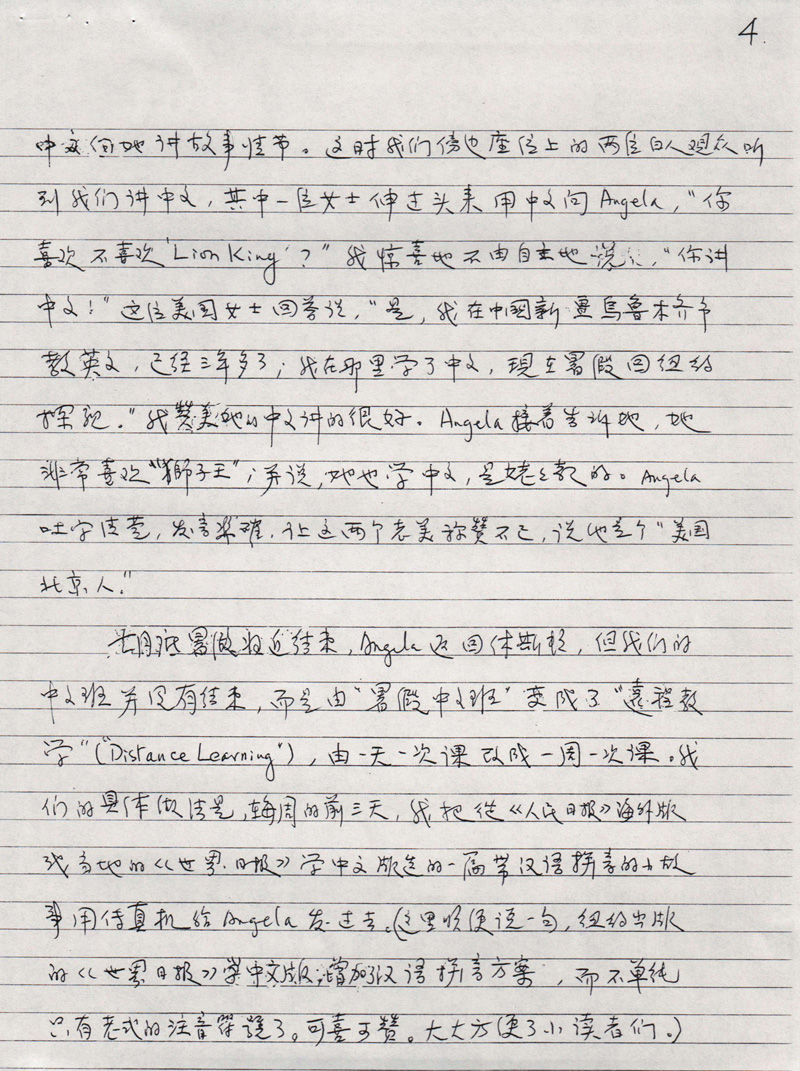 4.
中文向她讲故事情节。这时我们傍边座位上的两位白人观众听
到我们讲中文，其中一位女士伸过头来用中文问Angela，“你
喜欢不喜欢‘Lion King’？”我惊喜地不由自主地说：“你讲
中文！”这位美国女士回答说，“是，我在中國新疆烏鲁木齐市
教英文，已经三年多了；我在那里学了中文，現在暑假回纽约
探親。”我赞美她的中文讲的很好。Angela接着告诉她，她
非常喜欢“獅子王”；并说，她也学中文，是姥姥教的。Angela
吐字清楚，发音準確，让这两个老美称赞不已，说她是个“美国
北京人。”
八月底暑假将近结束，Angela返回休斯顿，但我们的
中文班并没有结束，而是由“暑假中文班”变成了“遠程教
学”（“Distance Learning”），由一天一次课改成一周一次课。我
们的具体做法是，每周的前三天，我把从《人民日报》海外版
或当地的《世界日报》学中文版选的一篇带汉语拼音的小故
事用传真机给Angela发过去。（这里顺便说一句，纽约出版
的《世界日报》学中文版，增加了汉语拼音方案，而不单纯
只有老式的注音符號了。可喜可赞。大大方便了小读者们。）